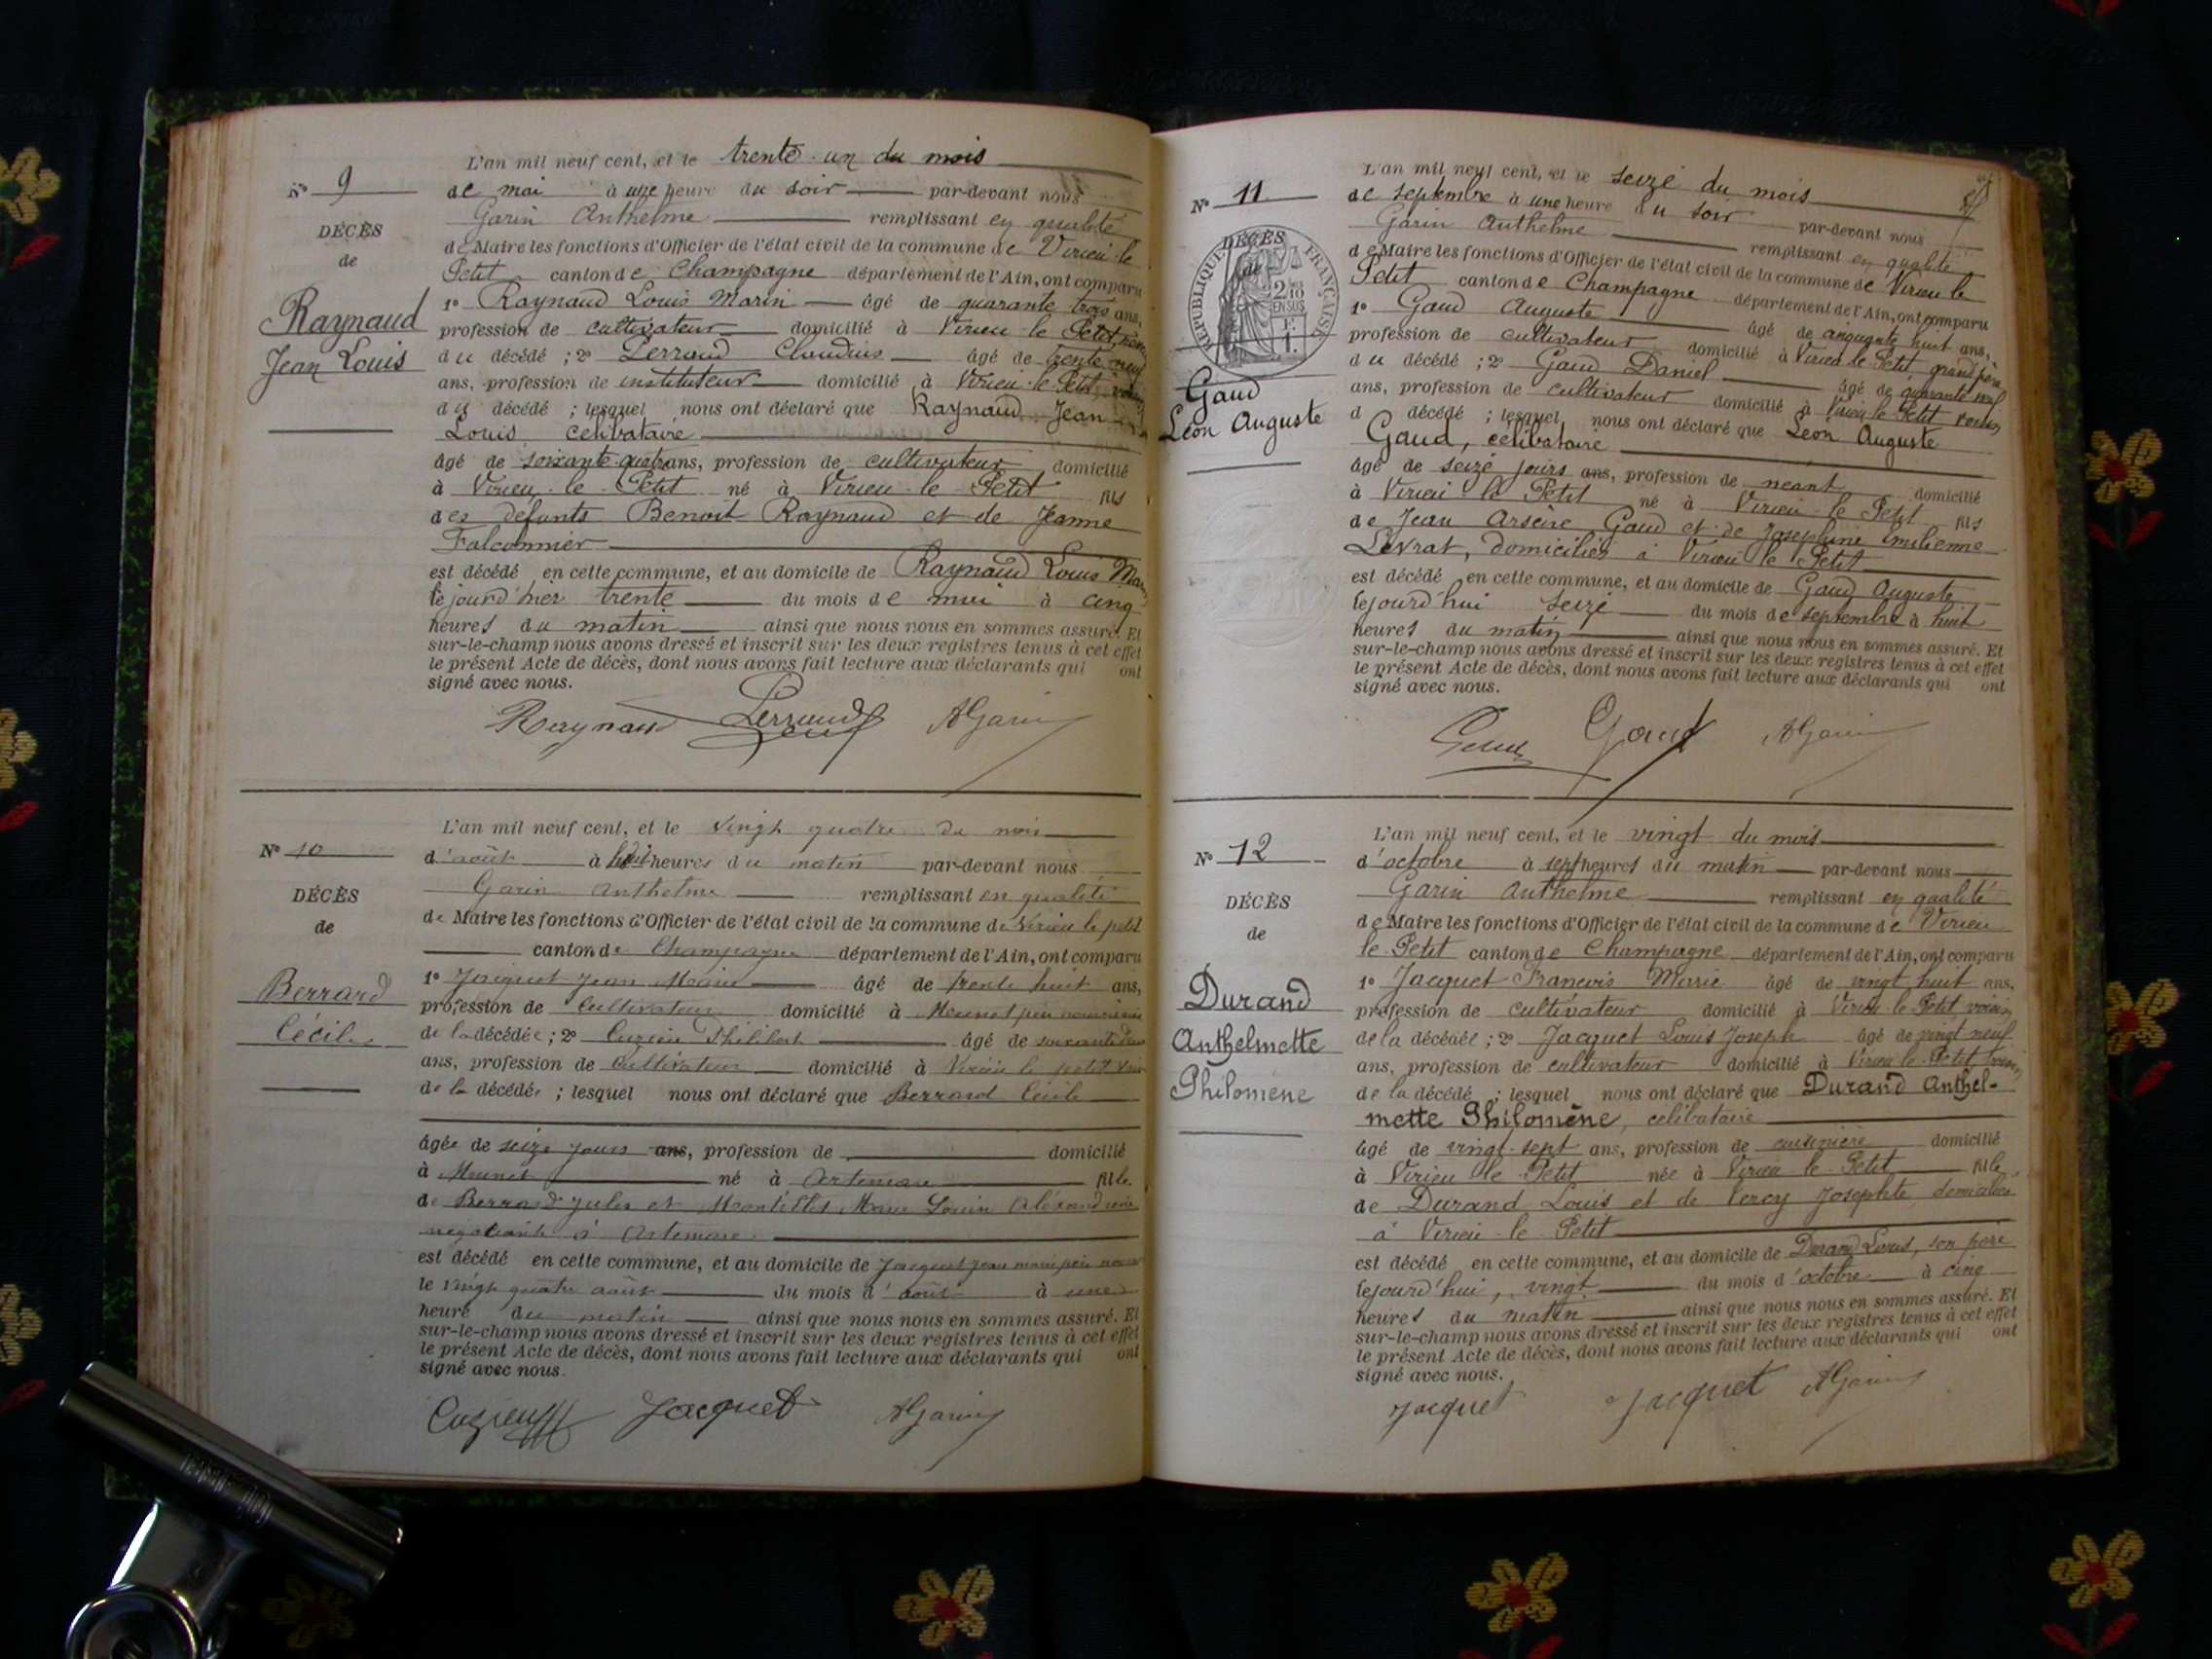 L'an mil neuf cent, et le trente-un du mois
N° 9
de mai à une heure du soir par-devant nous
Garin Anthelme remplissant en qualité
DÉCÈS
de Maire les fonctions d'Officier de l'état civil de la commune de Virieu-le
de
Petit canton de Champagne département de l'Ain, ont comparu
Raynaud
1° Raynaud Louis Marin âgé de quarante trois ans,
profession de cultivateur domicilié à Virieu-le-Petit,
Jean Louis
du décédé ; 2° Perraud Claudius âgé de trente neuf
ans, profession de instituteur domicilié à Virieu-le-Petit,
du décédé ; lesquel nous ont déclaré que Raynaud Jean
Louis célibataire
âgé de soixante-quatre ans, profession de cultivateur domicilié
à Virieu-le-Petit né à Virieu-le-Petit fils
des défunts Benoit Raynaud et de Jeanne
Falconnier
est décédé en cette commune, et au domicile de Raynaud Louis
le jourd'hier trente du mois de mai à cinq
heures du matin ainsi que nous nous en sommes assuré. Et
sur-le-champ nous avons dressé et inscrit sur les deux registres tenus à cet effet
le présent Acte de décès, dont nous avons fait lecture aux déclarants qui ont
signé avec nous.
Raynaud Perraud AGarin
L'an mil neuf cent, et le vingt quatre du mois
N° 10
d'août à huit heures du matin par-devant nous
Garin Anthelme remplissant en qualité
DÉCÈS
de Maire les fonctions d'Officier de l'état civil de la commune de Virieu le petit
de
canton de Champagne département de l'Ain, ont comparu
Berrard
1° Jacquet Jean Marie âgé de trente huit ans,
profession de Cultivateur domicilié à Munet
Cécile
de la décédée ; 2° Cuzieu Philibert âgé de
ans, profession de Cultivateur domicilié à Virieu le petit
de la décédée ; lesquel nous ont déclaré que Berrard Cécile
âgée de seize jours ans, profession de domicilié
à Munet né à Artemare fille
de Berrard Jules et Marie Alexandrine
à Artemare
est décédé en cette commune, et au domicile de Jacquet Jean
le vingt quatre août du mois d'août à une
heure du matin ainsi que nous nous en sommes assuré. Et
sur-le-champ nous avons dressé et inscrit sur les deux registres tenus à cet effet
le présent Acte de décès, dont nous avons fait lecture aux déclarants qui ont
signé avec nous.
Cuzieu Jacquet AGarin
L'an mil neuf cent, et le seize du mois
N° 11
de septembre à une heure du soir par-devant nous
Garin Anthelme remplissant en qualité
DÉCÈS
de
RÉPUBLIQUE FRANÇAISE
2/10 EN SUS
de Maire les fonctions d'Officier de l'état civil de la commune de Virieu le
Petit canton de Champagne département de l'Ain, ont comparu
1° Gaud Auguste âgé de cinquante huit ans,
profession de cultivateur domicilié à Virieu le Petit grand père
du décédé ; 2° Gaud Daniel âgé de quarante
Gaud
ans, profession de cultivateur domicilié à Virieu-le-Petit
Léon Auguste
d décédé ; lesquel nous ont déclaré que Léon Auguste
Gaud, célibataire
âgé de seize jours ans, profession de néant domicilié
à Virieu le Petit né à Virieu-le Petit fils
de Jean Arsène Gaud et de Josephine Emilienne
Levrat, domiciliés à Virieu le Petit
est décédé en cette commune, et au domicile de Gaud Auguste
lejourd'hui seize du mois de septembre à huit
heures du matin ainsi que nous nous en sommes assuré. Et
sur-le-champ nous avons dressé et inscrit sur les deux registres tenus à cet effet
le présent Acte de décès, dont nous avons fait lecture aux déclarants qui ont
signé avec nous.
Gaud Gaud AGarin
L'an mil neuf cent, et le vingt du mois
N° 12
d'octobre à sept heures du matin par-devant nous
Garin Anthelme remplissant en qualité
DÉCÈS
de Maire les fonctions d'Officier de l'état civil de la commune de Virieu
de
le Petit canton de Champagne département de l'Ain, ont comparu
Durand
1° Jacquet François Marie âgé de vingt huit ans,
profession de cultivateur domicilié à Virieu-le-Petit, voisin
Anthelmette
de la décédée ; 2° Jacquet Louis Joseph âgé de vingt neuf
ans, profession de cultivateur domicilié à Virieu-le-Petit voisin
Philomène
de la décédé ; lesquel nous ont déclaré que Durand Anthel-
mette Philomène, célibataire
âgé de vingt-sept ans, profession de cuisinière domicilié
à Virieu le Petit née à Virieu-le-Petit fille
de Durand Louis et de Vercy Josephte, domiciliés
à Virieu-le-Petit
est décédé en cette commune, et au domicile de Durand Louis, son père
lejourd'hui, vingt du mois d'octobre à cinq
heures du matin ainsi que nous nous en sommes assuré. Et
sur-le-champ nous avons dressé et inscrit sur les deux registres tenus à cet effet
le présent Acte de décès, dont nous avons fait lecture aux déclarants qui ont
signé avec nous.
Jacquet Jacquet AGarin